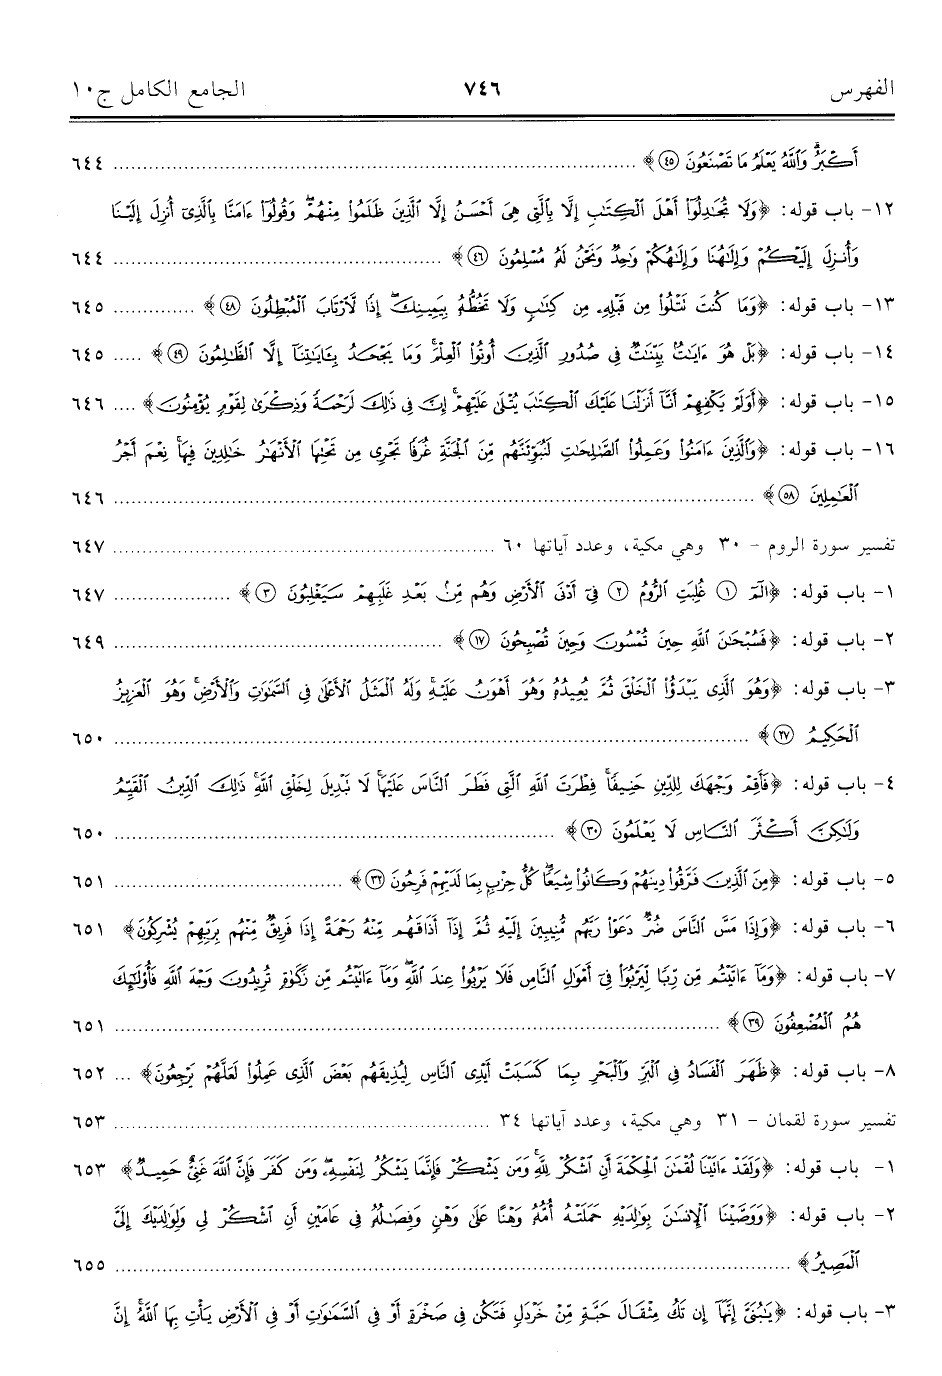 الفهرس ٧٤٦ الجامع الكامل ج١٠
أَكْبَرُ وَاللَّهُ يَعْلَمُ مَا تَصْنَعُونَ ﴿٤٥﴾ ........ ٦٤٤
١٢- باب قوله: ﴿وَلَا تُجَادِلُوا أَهْلَ الْكِتَابِ إِلَّا بِالَّتِي هِيَ أَحْسَنُ إِلَّا الَّذِينَ ظَلَمُوا مِنْهُمْ وَقُولُوا ءَامَنَّا بِالَّذِي أُنزِلَ إِلَيْنَا
وَأُنزِلَ إِلَيْكُمْ وَإِلَٰهُنَا وَإِلَٰهُكُمْ وَاحِدٌ وَنَحْنُ لَهُ مُسْلِمُونَ (٤٦)﴾ ........ ٦٤٤
١٣- باب قوله: ﴿وَمَا كُنتَ تَتْلُوا مِن قَبْلِهِ مِن كِتَابٍ وَلَا تَخُطُّهُ بِيَمِينِكَ إِذًا لَّارْتَابَ الْمُبْطِلُونَ (٤٨)﴾ ........ ٦٤٥
١٤- باب قوله: ﴿بَلْ هُوَ ءَايَاتٌ بَيِّنَاتٌ فِي صُدُورِ الَّذِينَ أُوتُوا الْعِلْمَ وَمَا يَجْحَدُ بِـَٔايَاتِنَا إِلَّا الظَّالِمُونَ (٤٩)﴾ ..... ٦٤٥
١٥- باب قوله: ﴿أَوَلَمْ يَكْفِهِمْ أَنَّا أَنزَلْنَا عَلَيْكَ الْكِتَابَ يُتْلَىٰ عَلَيْهِمْ إِنَّ فِي ذَٰلِكَ لَرَحْمَةً وَذِكْرَىٰ لِقَوْمٍ يُؤْمِنُونَ﴾ .... ٦٤٦
١٦- باب قوله: ﴿وَالَّذِينَ ءَامَنُوا وَعَمِلُوا الصَّالِحَاتِ لَنُبَوِّئَنَّهُم مِّنَ الْجَنَّةِ غُرَفًا تَجْرِي مِن تَحْتِهَا الْأَنْهَارُ خَالِدِينَ فِيهَا نِعْمَ أَجْرُ
الْعَامِلِينَ (٥٨)﴾ ........ ٦٤٦
تفسير سورة الروم - ٣٠ وهي مكية، وعدد آياتها ٦٠ ........ ٦٤٧
١- باب قوله: ﴿الٓمٓ (١) غُلِبَتِ الرُّومُ (٢) فِي أَدْنَى الْأَرْضِ وَهُم مِّنْ بَعْدِ غَلَبِهِمْ سَيَغْلِبُونَ (٣)﴾ ........ ٦٤٧
٢- باب قوله: ﴿فَسُبْحَانَ اللَّهِ حِينَ تُمْسُونَ وَحِينَ تُصْبِحُونَ (١٧)﴾ ........ ٦٤٩
٣- باب قوله: ﴿وَهُوَ الَّذِي يَبْدَؤُا الْخَلْقَ ثُمَّ يُعِيدُهُ وَهُوَ أَهْوَنُ عَلَيْهِ وَلَهُ الْمَثَلُ الْأَعْلَىٰ فِي السَّمَاوَاتِ وَالْأَرْضِ وَهُوَ الْعَزِيزُ
الْحَكِيمُ (٢٧)﴾ ........ ٦٥٠
٤- باب قوله: ﴿فَأَقِمْ وَجْهَكَ لِلدِّينِ حَنِيفًا فِطْرَتَ اللَّهِ الَّتِي فَطَرَ النَّاسَ عَلَيْهَا لَا تَبْدِيلَ لِخَلْقِ اللَّهِ ذَٰلِكَ الدِّينُ الْقَيِّمُ
وَلَٰكِنَّ أَكْثَرَ النَّاسِ لَا يَعْلَمُونَ (٣٠)﴾ ........ ٦٥٠
٥- باب قوله: ﴿مِنَ الَّذِينَ فَرَّقُوا دِينَهُمْ وَكَانُوا شِيَعًا كُلُّ حِزْبٍ بِمَا لَدَيْهِمْ فَرِحُونَ (٣٢)﴾ ........ ٦٥١
٦- باب قوله: ﴿وَإِذَا مَسَّ النَّاسَ ضُرٌّ دَعَوْا رَبَّهُم مُّنِيبِينَ إِلَيْهِ ثُمَّ إِذَا أَذَاقَهُم مِّنْهُ رَحْمَةً إِذَا فَرِيقٌ مِّنْهُم بِرَبِّهِمْ يُشْرِكُونَ﴾ ٦٥١
٧- باب قوله: ﴿وَمَا ءَاتَيْتُم مِّن رِّبًا لِّيَرْبُوَا فِي أَمْوَالِ النَّاسِ فَلَا يَرْبُوا عِندَ اللَّهِ وَمَا ءَاتَيْتُم مِّن زَكَاةٍ تُرِيدُونَ وَجْهَ اللَّهِ فَأُولَٰئِكَ
هُمُ الْمُضْعِفُونَ (٣٩)﴾ ........ ٦٥١
٨- باب قوله: ﴿ظَهَرَ الْفَسَادُ فِي الْبَرِّ وَالْبَحْرِ بِمَا كَسَبَتْ أَيْدِي النَّاسِ لِيُذِيقَهُم بَعْضَ الَّذِي عَمِلُوا لَعَلَّهُمْ يَرْجِعُونَ﴾ ... ٦٥٢
تفسير سورة لقمان - ٣١ وهي مكية، وعدد آياتها ٣٤ ........ ٦٥٣
١- باب قوله: ﴿وَلَقَدْ ءَاتَيْنَا لُقْمَانَ الْحِكْمَةَ أَنِ اشْكُرْ لِلَّهِ وَمَن يَشْكُرْ فَإِنَّمَا يَشْكُرُ لِنَفْسِهِ وَمَن كَفَرَ فَإِنَّ اللَّهَ غَنِيٌّ حَمِيدٌ﴾ ٦٥٣
٢- باب قوله: ﴿وَوَصَّيْنَا الْإِنسَانَ بِوَالِدَيْهِ حَمَلَتْهُ أُمُّهُ وَهْنًا عَلَىٰ وَهْنٍ وَفِصَالُهُ فِي عَامَيْنِ أَنِ اشْكُرْ لِي وَلِوَالِدَيْكَ إِلَيَّ
الْمَصِيرُ﴾ ........ ٦٥٥
٣- باب قوله: ﴿يَا بُنَيَّ إِنَّهَا إِن تَكُ مِثْقَالَ حَبَّةٍ مِّنْ خَرْدَلٍ فَتَكُن فِي صَخْرَةٍ أَوْ فِي السَّمَاوَاتِ أَوْ فِي الْأَرْضِ يَأْتِ بِهَا اللَّهُ إِنَّ